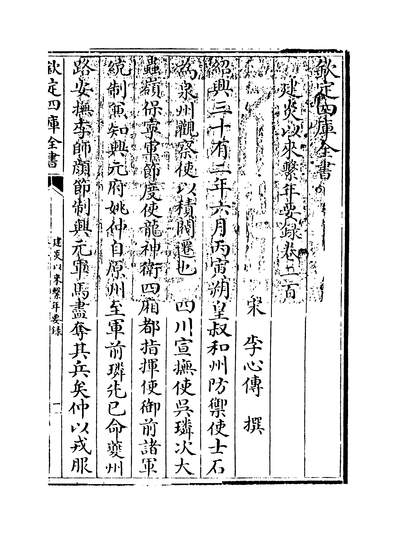 欽定四庫全書
建炎以來繫年要錄卷二百
宋 李心傳 撰
紹興三十有二年六月丙寅朔皇叔和州防禦使士石
為泉州觀察使以積閥遷也 四川宣撫使吳璘次大
蟲嶺保寧軍節度使龍神衛四厢都指揮使御前諸軍
統制兼知興元府姚仲自原州至軍前璘先已命夔州
路安撫李師顔節制興元軍馬盡奪其兵矣仲以戎服
欽定四庫全書
建炎以來繫年要錄
一